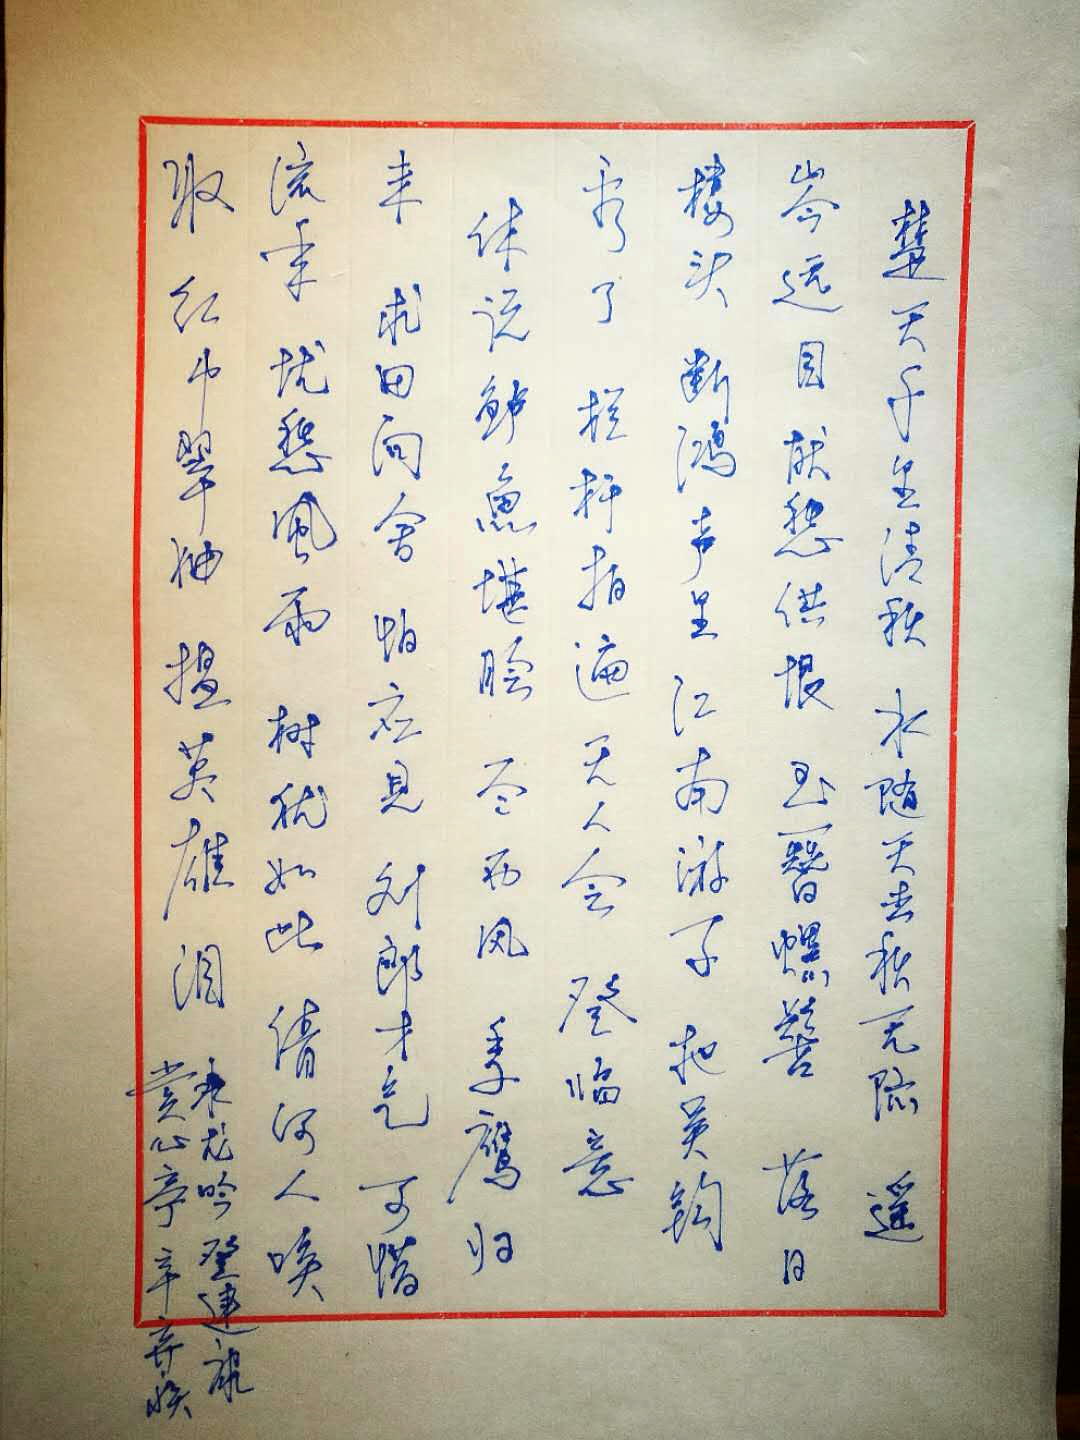 楚天千里清秋 水随天去秋无际 遥
岑远目 献愁供恨 玉簪螺髻 落日
楼头 断鸿声里 江南游子 把吴钩
看了 栏杆拍遍 无人会 登临意
休说鲈鱼堪脍 尽西风 季鹰归
来 求田问舍 怕应见 刘郎才气 可惜
流年 忧愁风雨 树犹如此 倩何人唤
取 红巾翠袖 揾英雄泪
水龙吟 登建康
赏心亭 辛弃疾